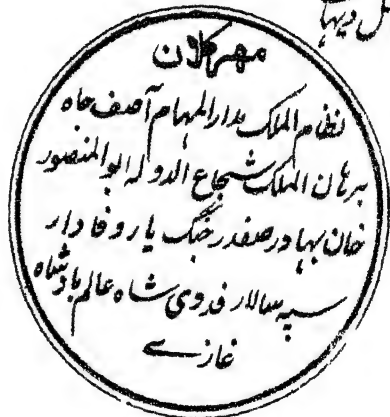 ل دیہا
مهر کلان
نظام الملک مدار المهام آصف جاه
برهان الملک شجاع الدوله ابو المنصور
خان بهادر صفدر جنگ یار وفادار
سپه سالار فدوی شاه عالم بادشاه
غازے